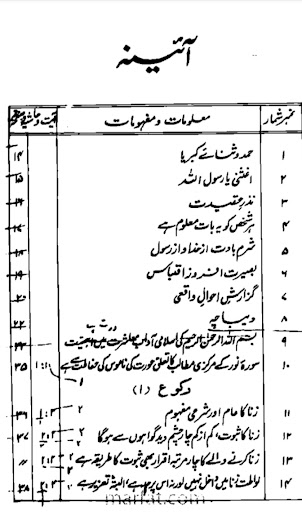 آئینہ
نمبر شمار معلومات و مفہومات آیت و حاشیہ صفحہ
۱ حمد و ثنائے کبریا ۱۴
۲ اغثنی یا رسول اللہ ۱۵
۳ نذرِ عقیدت
۴ ہر شخص کو یہ بات معلوم ہے
۵ شرم بادت از خدا و از رسول
۶ بصیرت افروز اقتباس ۱۹
۷ گزارش احوالِ واقعی ۲۰
۸ دیباچہ ۲۲
۹ بسم اللہ الرحمٰن الرحیم کی اسلامی آدابِ معاشرت میں اہمیت
۱۰ سورۂ نور کے مرکزی مطالب کا تعلق عورت کی ناموس کی حفاظت سے ہے ۱:۱ ۳۵
رکوع (۱)
۱۱ زنا کا عام اور شرعی مفہوم ۲ ۳۶
۱۲ زنا کا ثبوت، کم از کم چار چشم دید گواہوں سے ہوگا ۲ ۳۷
۱۳ زنا کرنے والے کا چار مرتبہ اقرار بھی ثبوت کا طریقہ ہے ۲ "
۱۴ لواطت زنا میں داخل نہیں اور نہ اس پر حد ہے، البتہ تعزیر ہے ۲ ۳۸
marfat.com